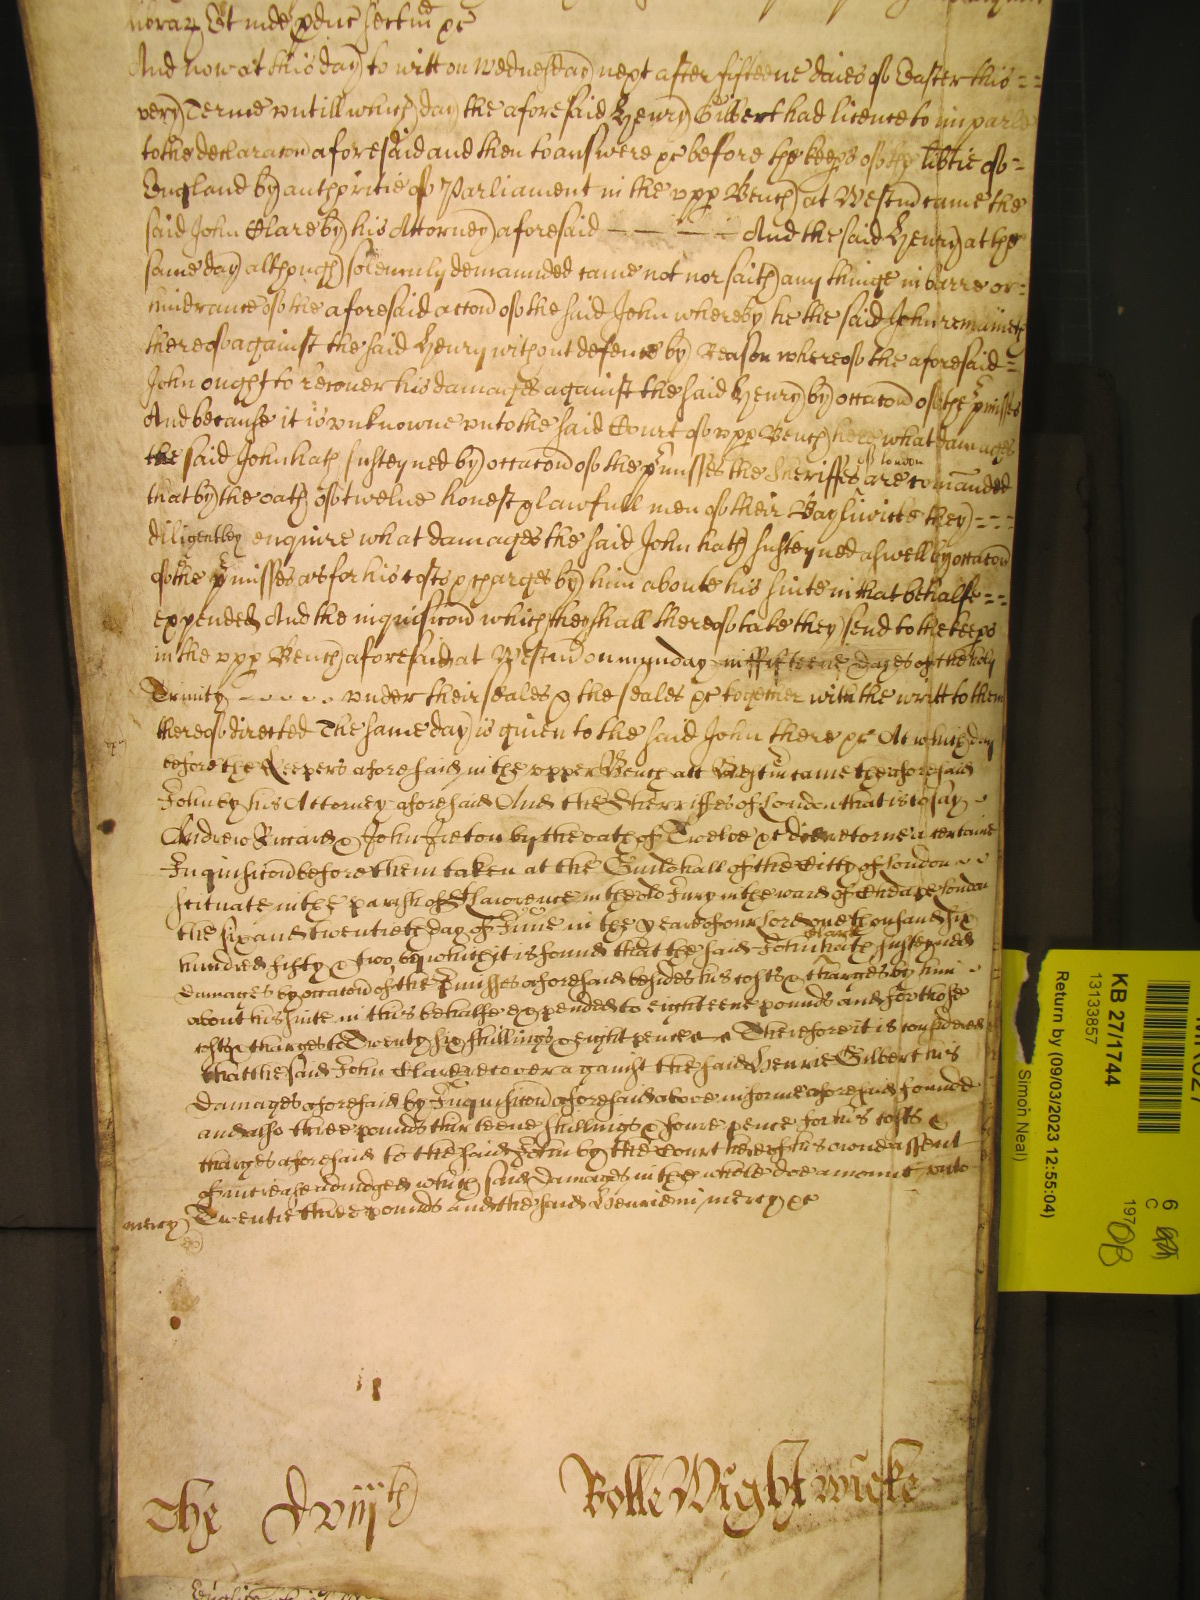 Et inde pduc sectm &c
And now at this day to witt on Wednesday next after fifteene daies of Easter this = =
very Terme vntill which day the aforesaid Henry Gilbert had licence to imparle
to the declaracon aforesaid and then to answere &c before the keeps of the libtie of =
England by authoritie of Parliament in the vpp Bench at Westm came the
said John Clare by his Attorney aforesaid — — — — And the said Henry at the
same day although solemnly demaunded came not nor saith any thinge in barre or =
hindrance of the aforesaid accon of the said John whereby he the said John remaineth
thereof against the said Henry without defence by Reason whereof the aforesaid =
John ought to recouer his damages against the said Henry by occacon of the pmisses
And because it is vnknowne vnto the said Court of vpp Bench here what damages
the said John hath susteyned by occacon of the pmisses the Sheriffes of London are comanded
that by the oath of twelue honest & lawfull men of their Baylwicke they = = =
diligentley enquire what damages the said John hath susteyned aswell by occacon
of the pmisses as for his costs & charges by him aboute his suite in that behalfe = =
expended And the inquisicon which they shall thereof take they send to the keeps
in the vpp Bench aforesaid at Westm on munday in fifteene Dayes of the holy
Trinity - - - - - vnder their seales & the seales &c together with the writt to them
thereof directed The same day is giuen to the said John there &c At which day
before the Keepers aforesaid in the vpper Bench att Westm came the aforesaid
John by his Attorney aforesaid And the Sherriffes of London that is to say
Andrew Riccard & John by the oath of Twelve &c doe retorne a certaine
Inquisicon before them taken at the Guildhall of the Citty of London
scituate in the parish of St Lawrence in the old Jury in the ward of Cheape London
the six and twentieth day of June in the yeare of our Lord one thousand six
hundred fifty & two by which it is found that the said John Clare hath susteyned
damages by occacon of the pmisses aforesaid besides his costs & charges by him
about his suite in this behalfe expended to eighteene pounds and for those
costs & charges to Twenty six shillings & eight pence Therefore it is considered
that the said John Clare recover against the said Henrie Gilbert his
damages aforesaid by Inquisicon aforesaid above in forme aforesaid found
and also three pounds thirteene shillings & foure pence for his costs &
charges aforesaid to the said John by the Court here of his owne assent
of increase adiudged which said damages in the whole doe amount vnto
Twentie three pounds and the said Henrie in mercy &c
mercy
The xviijth
Rolle Wightwicke
KB 27/1744
13133857
Return by (09/03/2023 12:55:04)
Simon Neal)
6
C
197